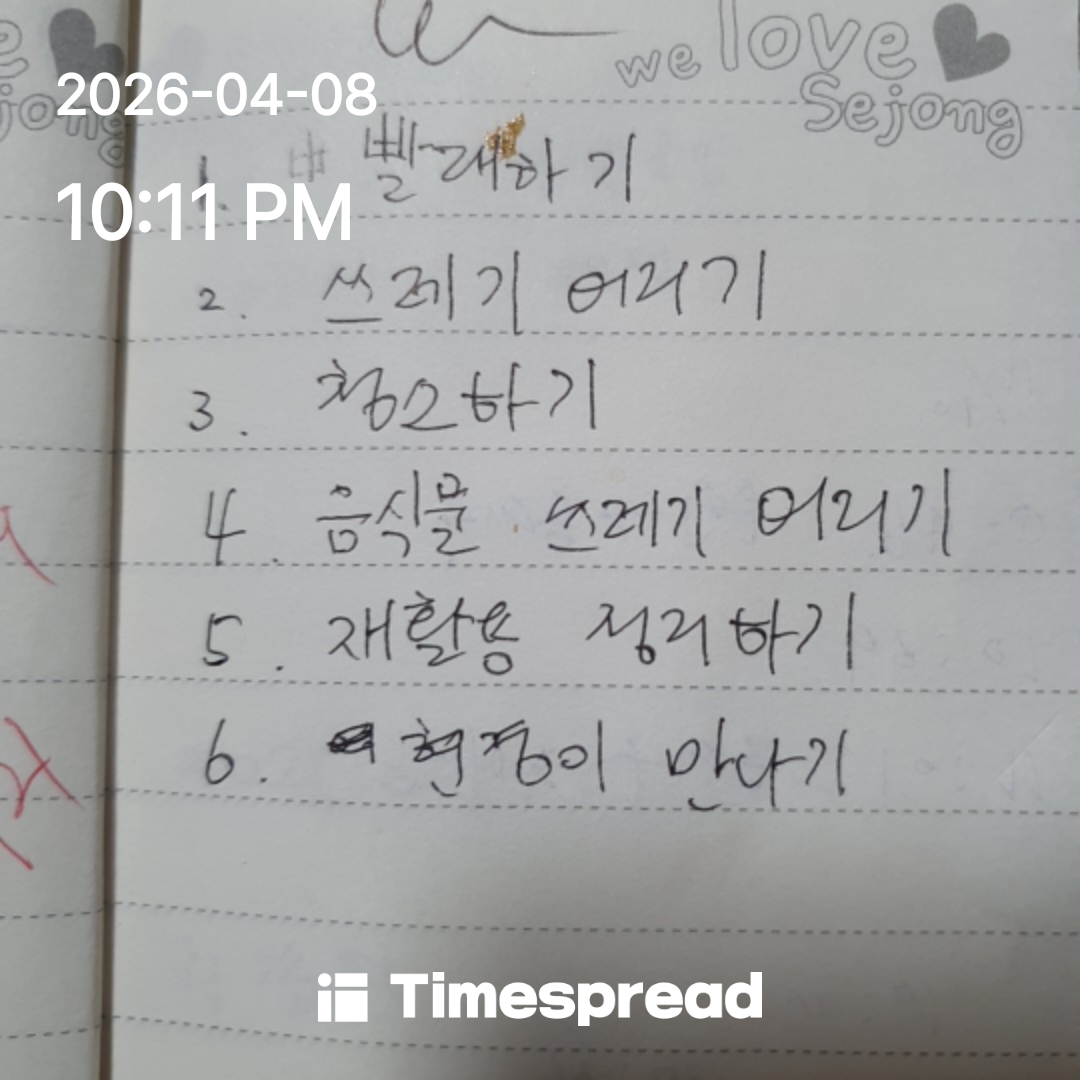 we love
Sejong
2026-04-08
1. 빨래하기
10:11 PM
2. 쓰레기 어리기
3. 청소하기
4. 음식물 쓰레기 어리기
5. 재활용 정리하기
6. 현정이 만나기
Timespread